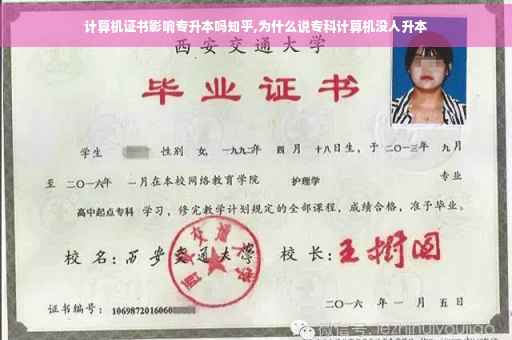 计算机证书影响专升本吗知乎,为什么说专科计算机没人升本
西安交通大学
毕业证书
学生 性别 女, 一九九二年 四月 十八日生, 于二〇一三年 九月
至 二〇一六年 一月在本校网络教育学院 护理学 专业
高中起点专科 学习, 修完教学计划规定的全部课程, 成绩合格, 准予毕业。
校 名: 西安交通大学 校 长: 王树国
西安交通大学
证书编号: 1069872016060
二〇一六 年 一 月 五 日
微信号: jezhihuiyoujiao